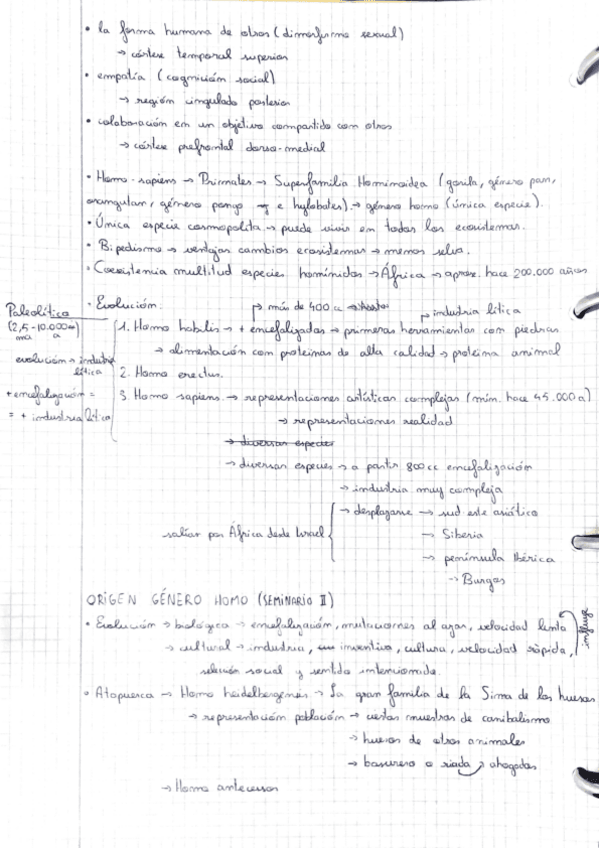 • la forma humana de otros (dimorfismo sexual)
→ córtex temporal superior
• empatía (cognición social)
→ región cingulada posterior
• colaboración en un objetivo compartido con otros
→ córtex prefrontal dorso-medial
• Homo-sapiens → Primates → Superfamilia Hominoidea (gorila, género pan,
orangutan, género pongo e hylobates) → género homo (única especie).
• Única especie cosmopolita → puede vivir en todos los ecosistemas.
• Bipedismo → ventajas cambios ecosistemas → menos selva.
• Coexistencia multitud especies homínidos → África → aprox. hace 200.000 años
• Evolución: → más de 400 cc → industria lítica
Paleolítico
(2,5-10.000 a)
ma a
evolución → industria
lítica
+ encefalización =
= + industria lítica
1. Homo habilis → + encefalizados → primeras herramientas con piedras
→ alimentación con proteínas de alta calidad → proteína animal
2. Homo erectus.
3. Homo sapiens → representaciones artísticas complejas (mín. hace 45.000 a)
→ representaciones realidad
→ diversas especies
→ diversas especies → a partir 800 cc encefalización
→ industria muy compleja
→ desplazarse → sud este asiático
salían por África desde Israel → Siberia
→ península Ibérica
→ Burgos
ORIGEN GÉNERO HOMO (SEMINARIO II)
• Evolución → biológica → encefalización, mutaciones al azar, velocidad lenta
→ cultural → industria, inventiva, cultura, velocidad rápida,
relación social y sentido intencionado.
influye
• Atapuerca → Homo heidelbergensis → La gran familia de la Sima de los huesos
→ representación población → ciertas muestras de canibalismo
→ huesos de otros animales
→ basurero o riada → ahogados
→ Homo antecessor